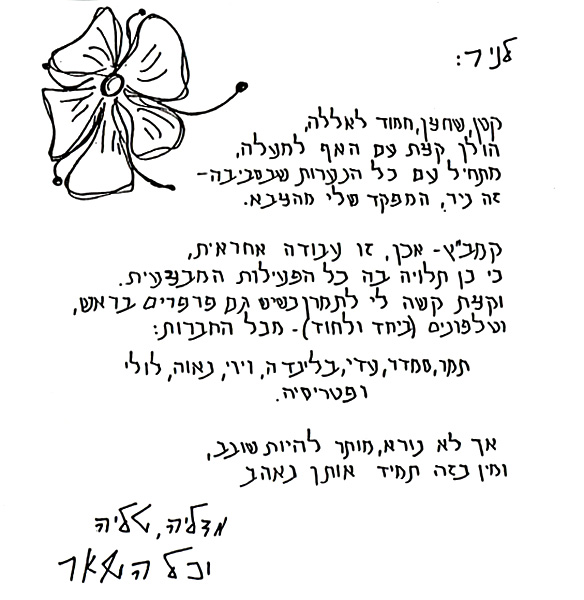 לניר:
קטן, שחצן, חמוד לאללה,
הולך קצת עם האף למעלה,
מתחיל עם כל הנערות שבסביבה-
זה ניר, המפקד שלי מהצבא.
קמב"ץ- אכן, זו עבודה אחראית,
כי כן תלויה בה כל הפעילות המבצעית.
וקצת קשה לי לתמרן כשיש גם פרפרים בראש,
וטלפונים (ביחד ולחוד)- מכל החברות:
תמר, סמדר, עדי, בלינדה, ויוי, נאוה, לולי
ופטריסיה.
אך לא נורא, מותר להיות שובב,
ומין כזה תמיד אותך נאהב
מדליה, טליה
וכל השאר